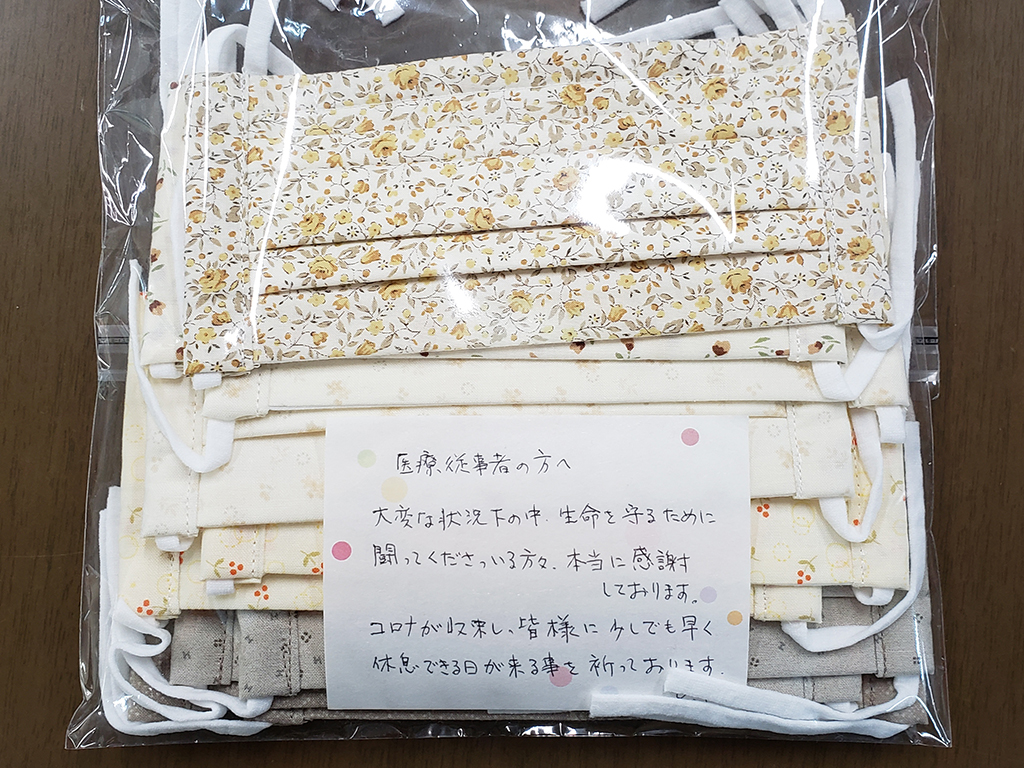 医療従事者の方へ
大変な状況下の中、生命を守るために
闘ってくださっいる方々、本当に感謝
しております。
コロナが収束し、皆様に少しでも早く
休息できる日が来る事を祈っております。